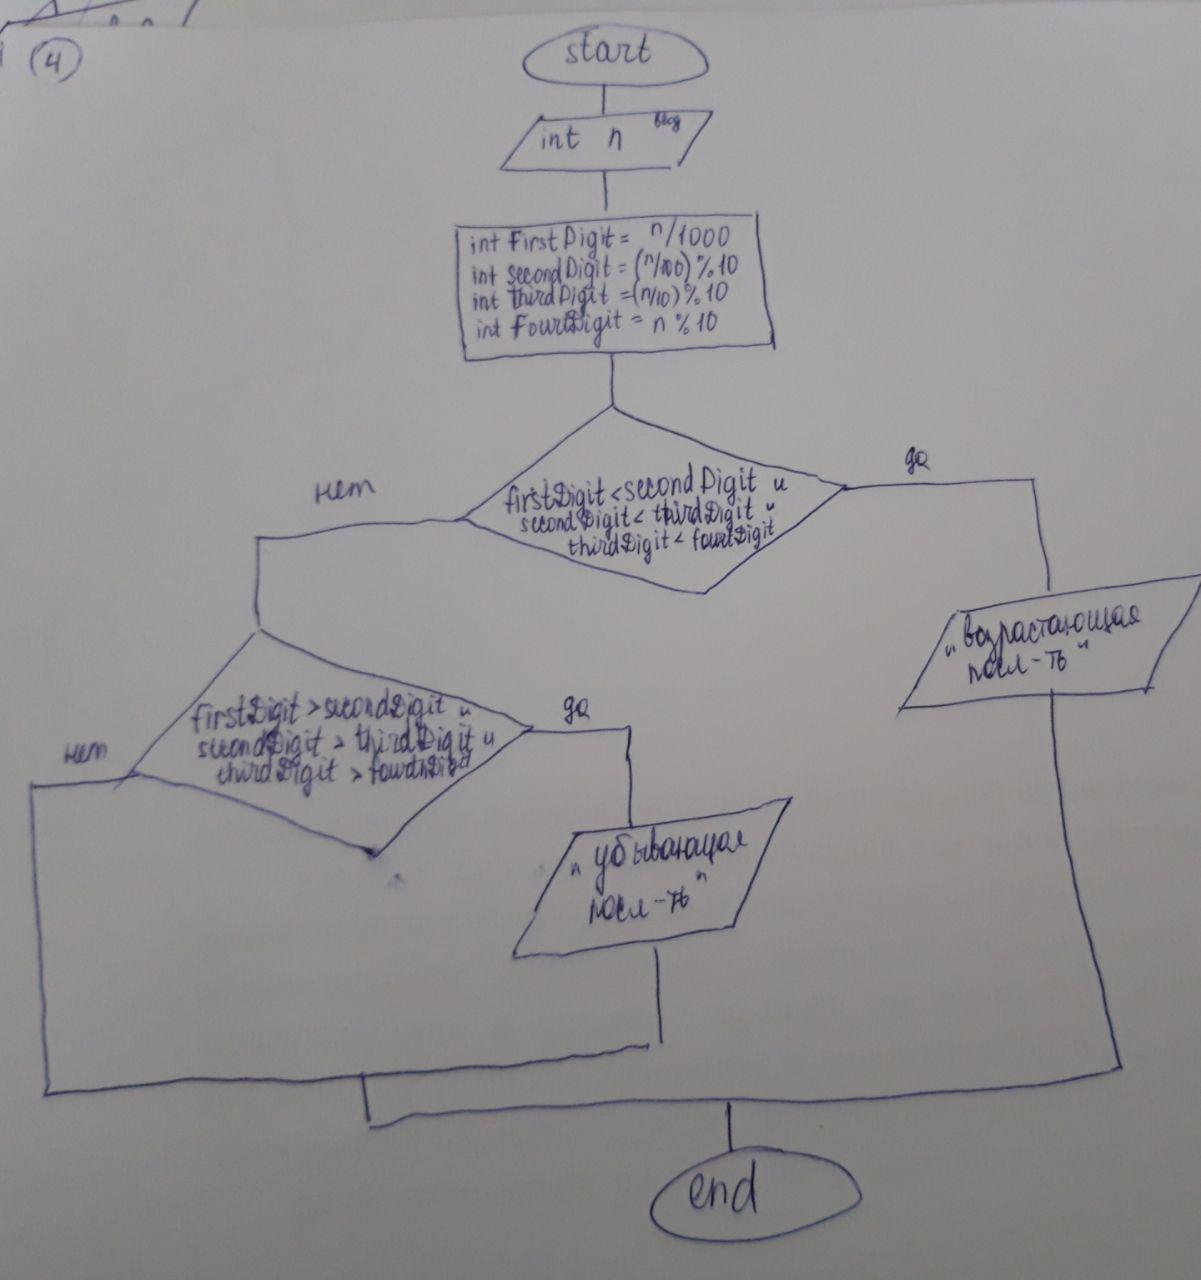 4
start
int n ввод
int firstDigit = n/1000
int secondDigit = (n/100) % 10
int thirdDigit = (n/10) % 10
int fourDigit = n % 10
firstDigit < secondDigit и
secondDigit < thirdDigit и
thirdDigit < fourtDigit
нет
да
"возрастающая
посл-ть"
firstDigit > secondDigit и
secondDigit > thirdDigit и
thirdDigit >
нет
да
"убывающая
посл-ть"
end